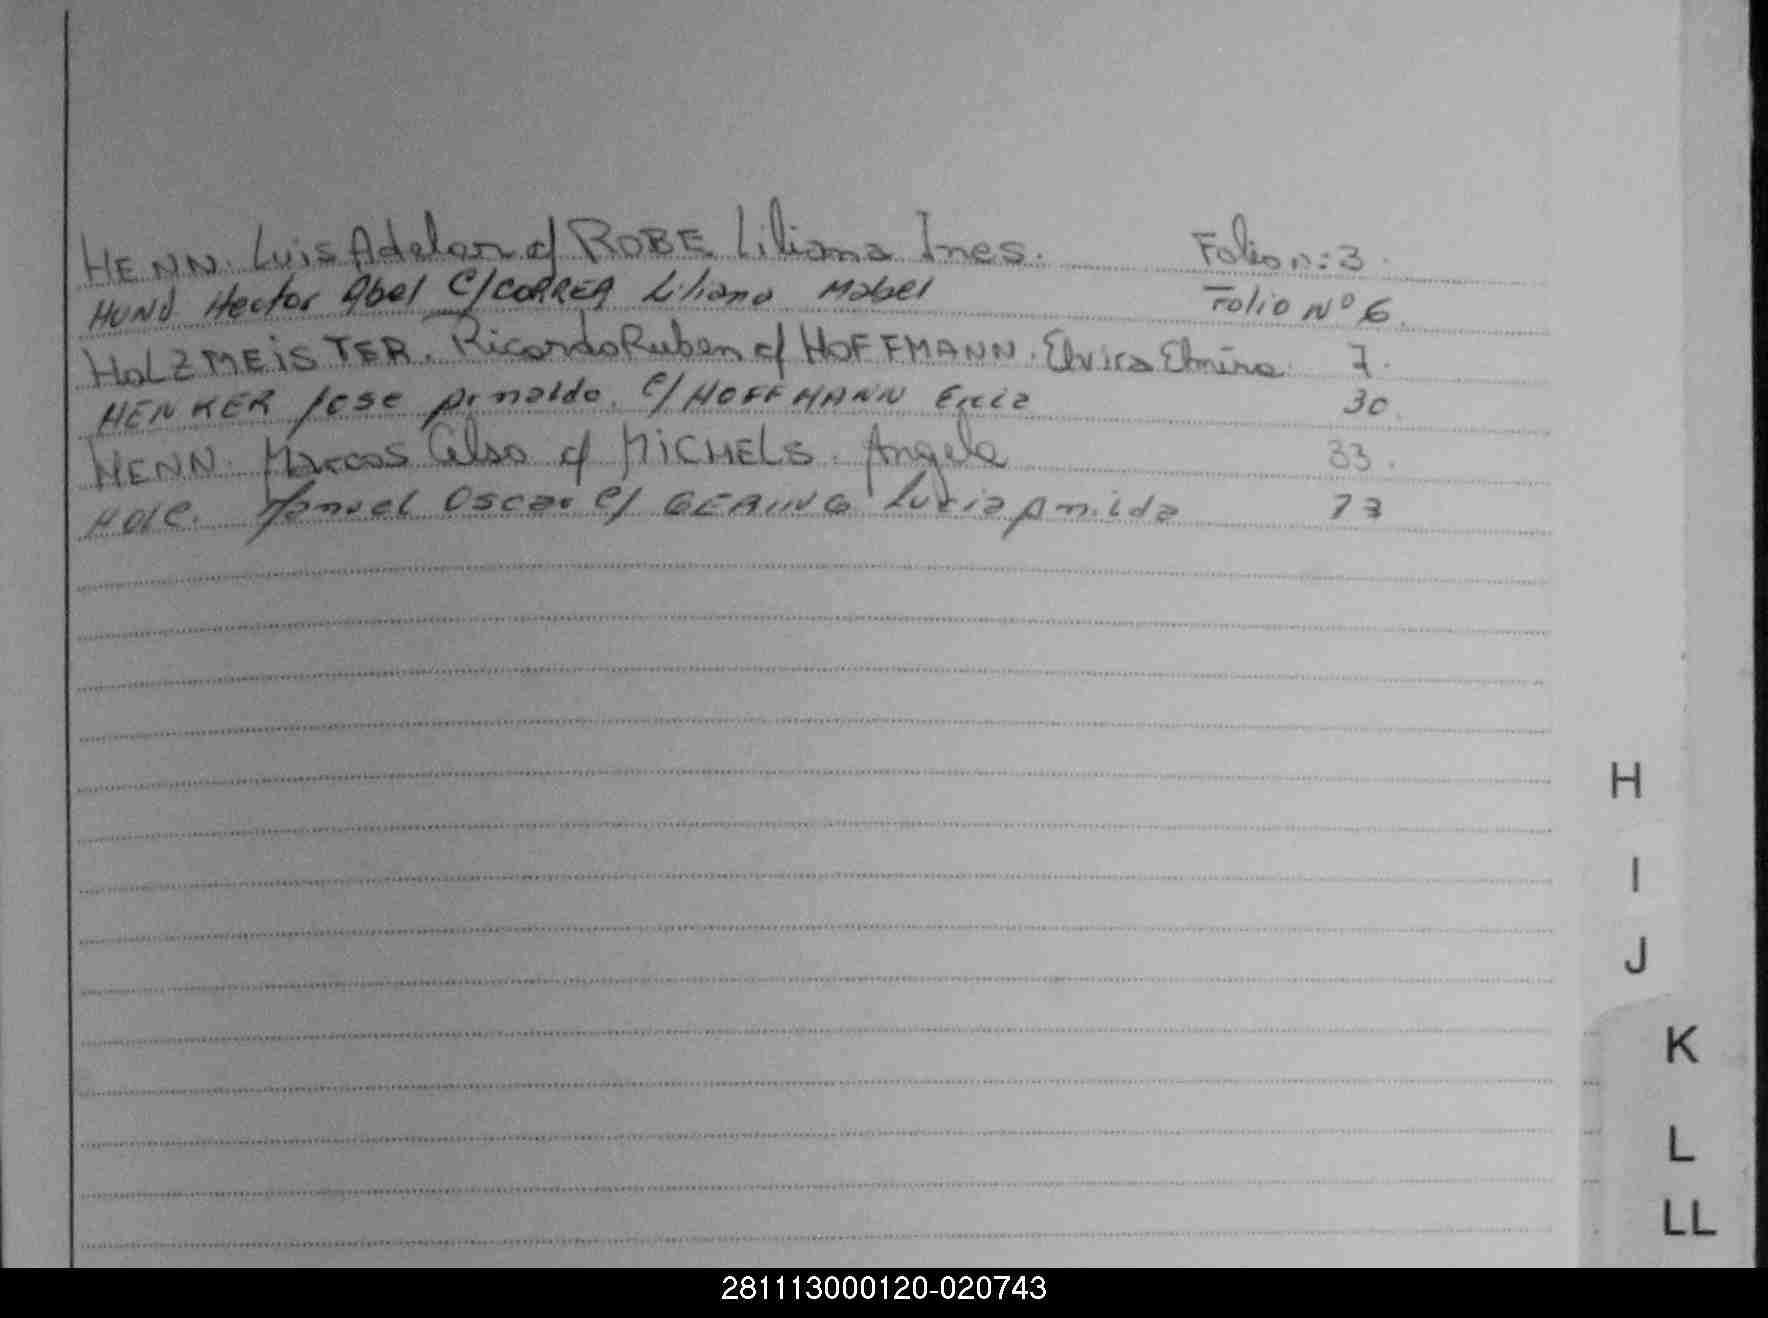 HENN. Luis Adelar c/ ROBE Liliana Ines. Folio n: 3.
HUND Hector Abel C/CORREA Liliana Mabel Folio Nº 6.
HOLZMEISTER. Ricardo Ruben c/ HOFFMANN. Elvira Elmira 7.
HENKER Jose Arnaldo. C/HOFFMANN 30.
HENN. Marcos Celso c/ MICHELS. Angela 33.
Manuel Oscar C/ GERING Lucia 73
H
I
J
K
L
LL
281113000120-020743